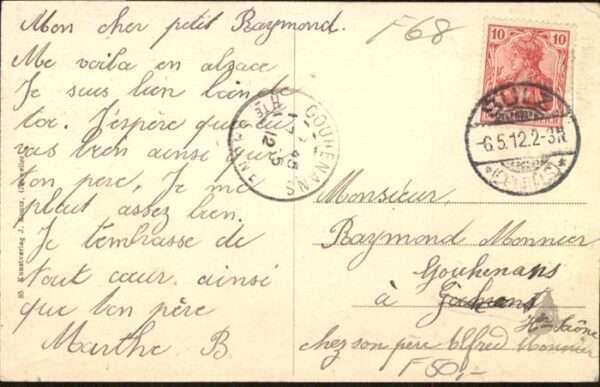 Mon cher petit Raymond.
Me voila en alsace
Je suis bien loin de
toi. J'espère que tu
vas bien ainsi que
ton père, Je me
plait assez bien.
Je t'embrasse de
tout cœur ainsi
que ton père
Marthe B
F68
10 10
SULZ
-6.5.12.2-3N
GOUHENANS
12
Monsieur
Raymond Monnier
Gouhenans
à
Hte Saône
chez son père Alfred Monnier
F50,-
Kunstverlag J.